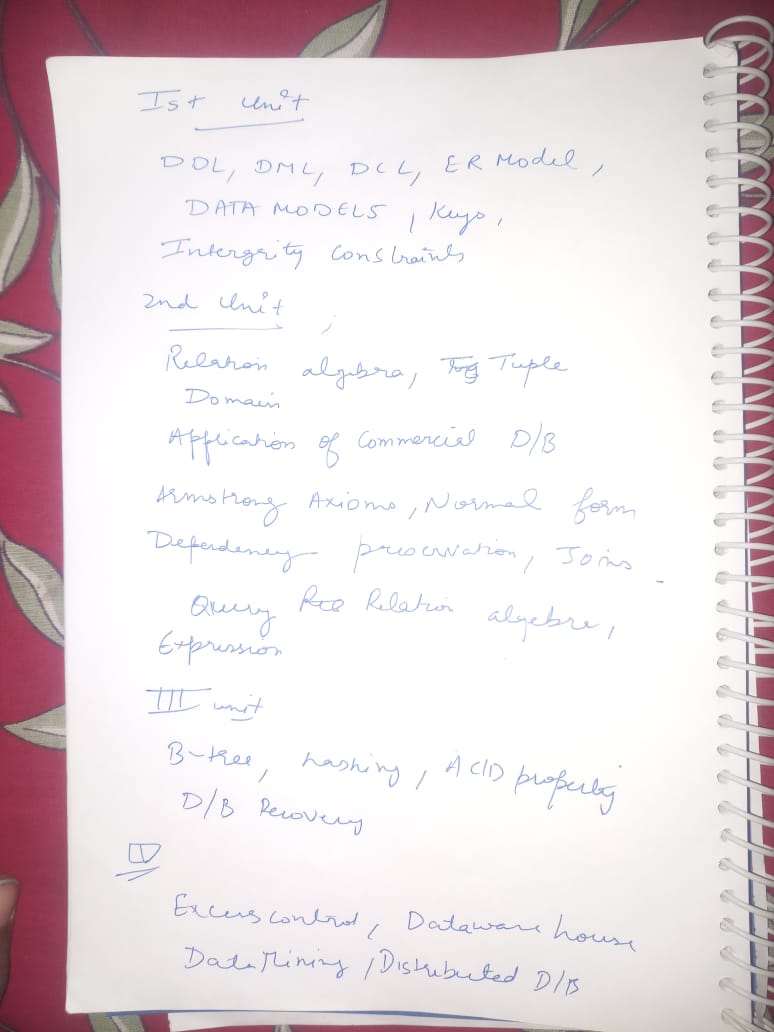 Ist unit
DDL, DML, DCL, ER Model,
DATA MODELS, Keys,
Intergrity Constraints
2nd Unit,
Relation algebra, Tuple
Domain
Application of Commercial D/B
Armstrong Axioms, Normal form
Dependency preservation, Joins
Query Relation algebra,
Expression
III unit
B-tree, hashing, ACID property
D/B Recovery
IV
Excess control, Dataware house
Data Mining, Distributed D/B